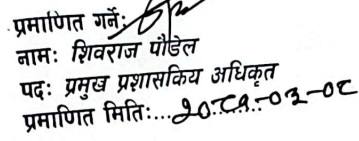 प्रमाणित गर्ने:
नाम: शिवराज पौडेल
पद: प्रमुख प्रशासकिय अधिकृत
प्रमाणित मिति:...२०८१-०३-०८